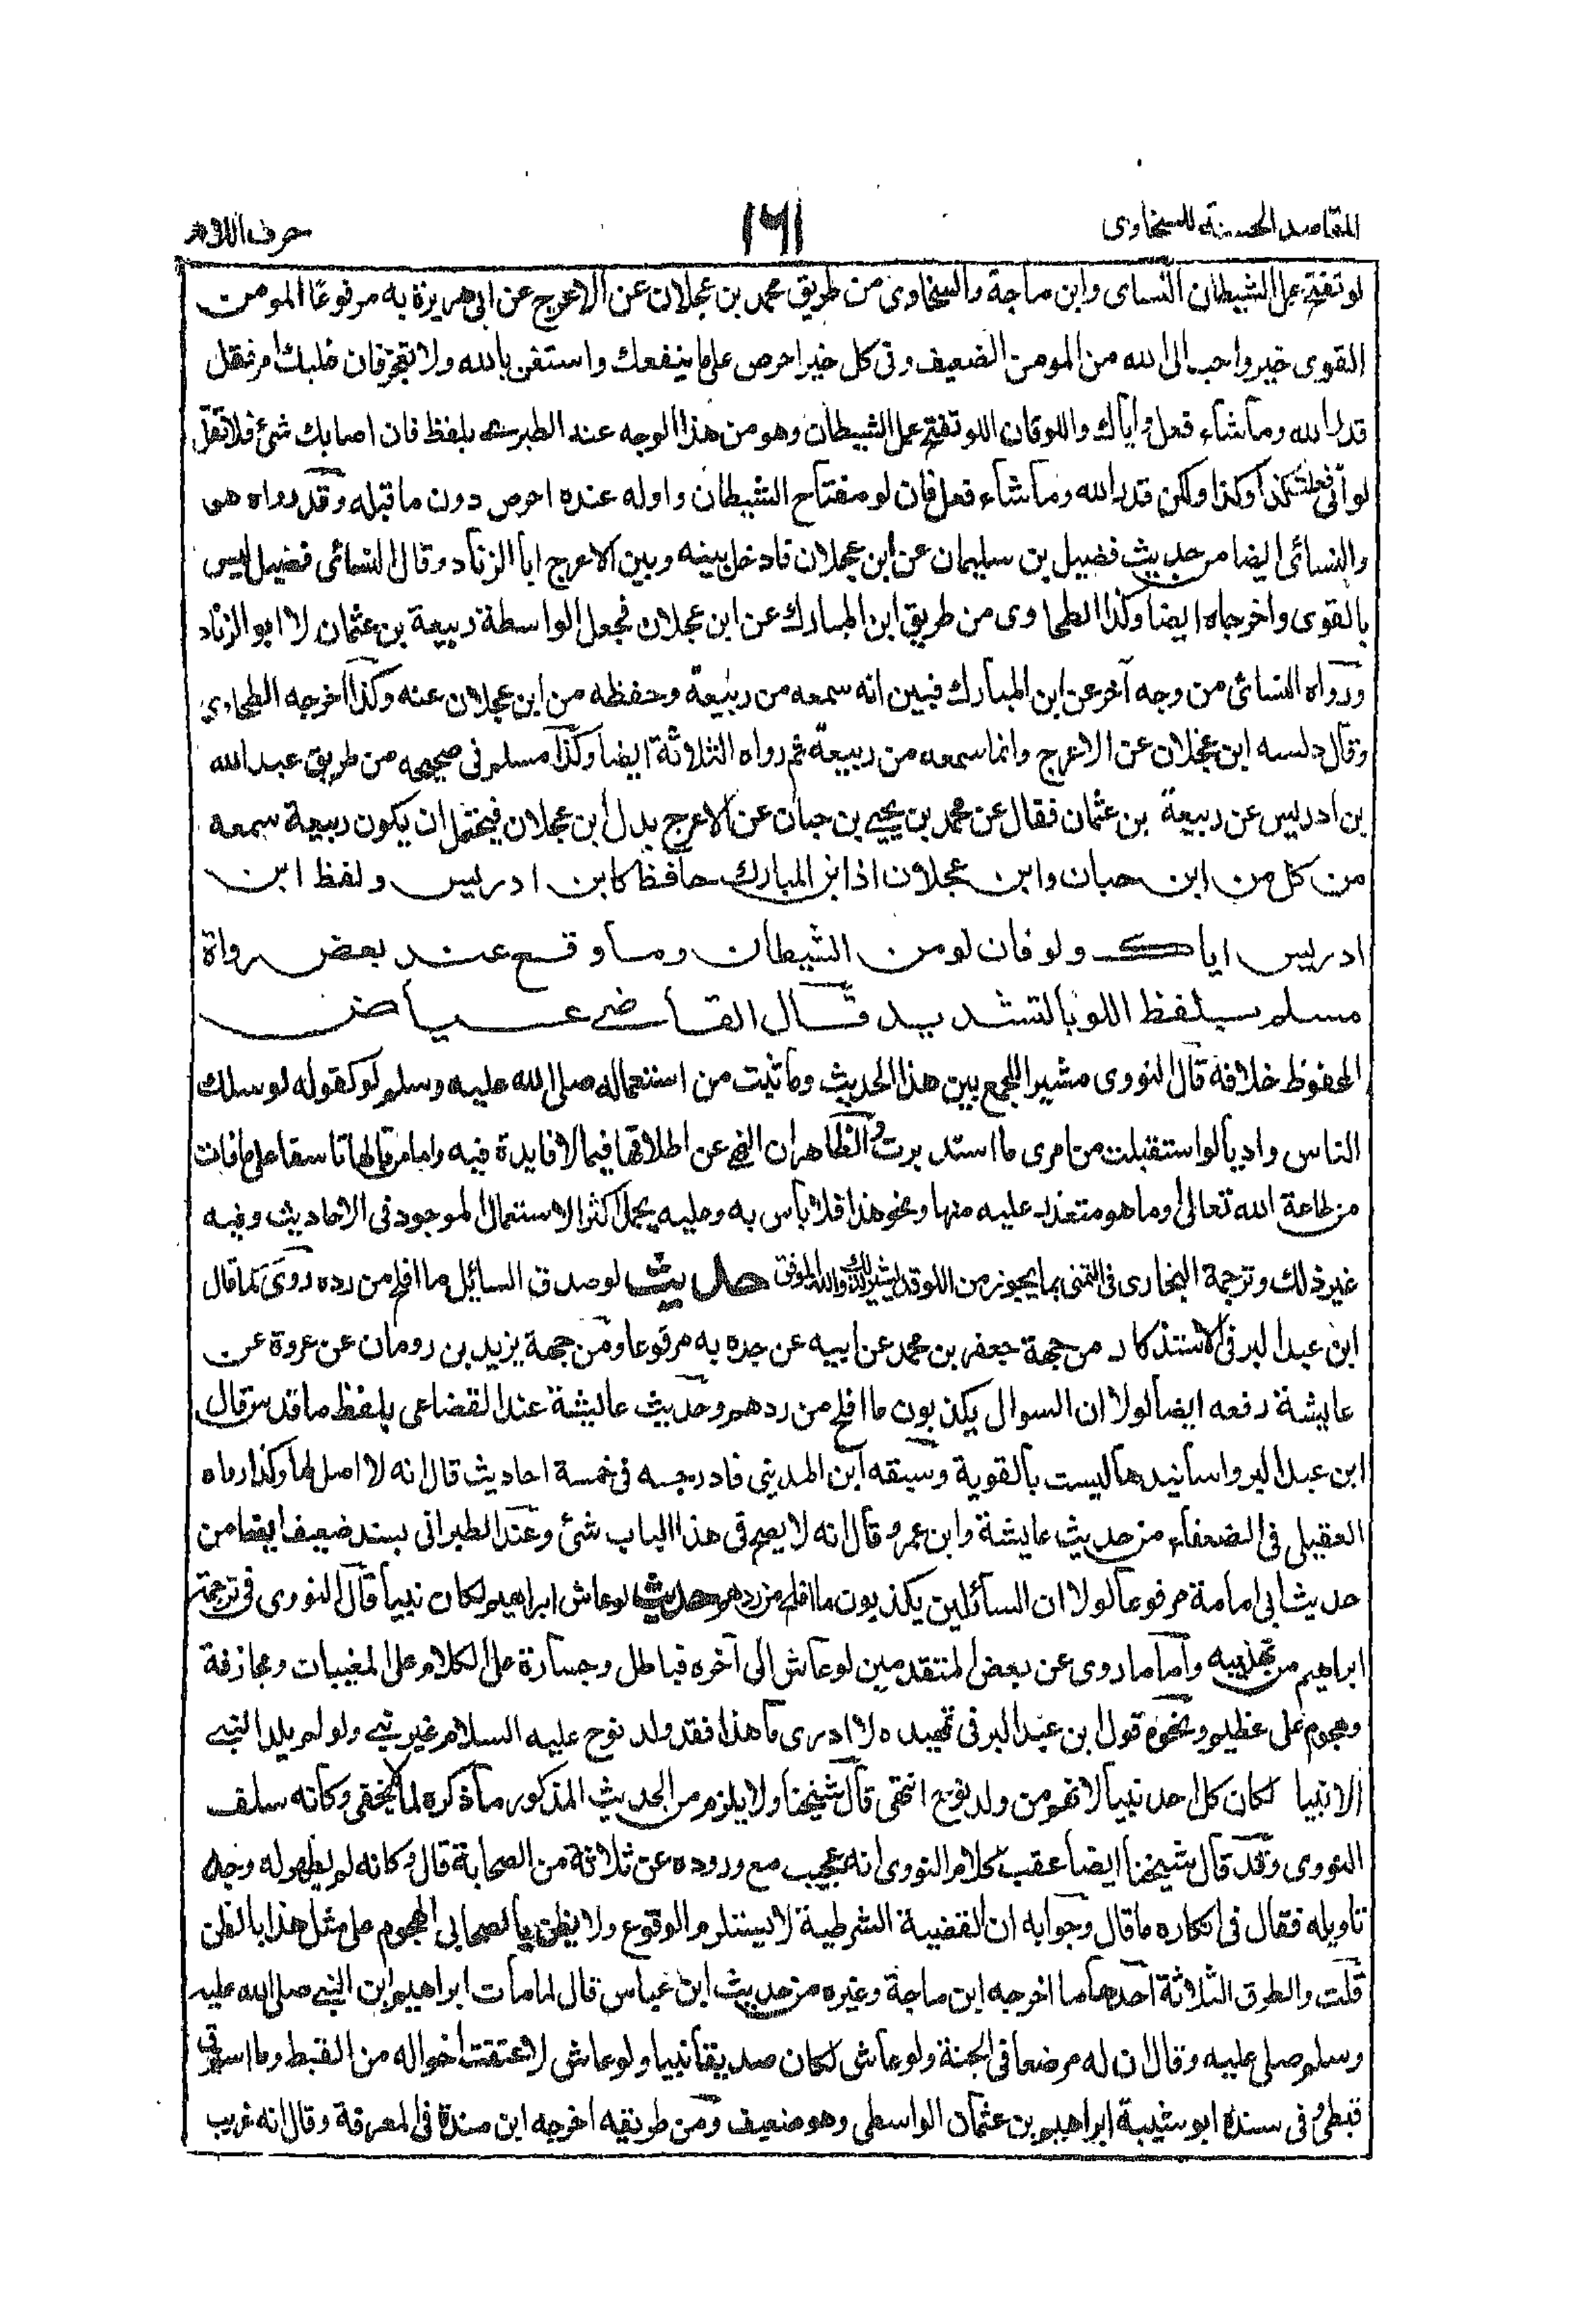 المقاصد الحسنة للسخاوى
١٦١
حرف اللام
لو تفتح عمل الشيطان النساى وابن ماجة والسخاوى من طريق محمد بن عجلان عن الاعرج عن ابى هريرة به مرفوعا المومن
القوى خير واحب الى الله من المومن الضعيف وفى كل خير احرص على ما ينفعك واستعن بالله ولا تعجز فان غلبك امر فقل
قدر الله وما شاء فعل واياك واللو فان اللو تفتح عمل الشيطان وهو من هذا الوجه عند الطبرى بلفظ فان اصابك شئ فلا تقل
لو أنى فعلت كذا وكذا ولكن قدر الله وما شاء فعل فان لو مفتاح الشيطان واوله عنده احرص دون ما قبله وقد رواه هو
والنسائى ايضا من حديث فضيل بن سليمان عن ابن عجلان فادخل بينه وبين الاعرج ابا الزناد وقال النسائى فضيل ليس
بالقوى واخرجاه ايضا وكذا الطحاوى من طريق ابن المبارك عن ابن عجلان فجعل الواسطة ربيعة بن عثمان لا ابو الزناد
ورواه النسائى من وجه آخر عن ابن المبارك فبين انه سمعه من ربيعة وحفظه من ابن عجلان عنه وكذا اخرجه الطحاوي
وقال دلسه ابن عجلان عن الاعرج وانما سمعه من ربيعة ثم رواه الثلاثة ايضا وكذا مسلم فى صحيحه من طريق عبد الله
بن ادريس عن ربيعة بن عثمان فقال عن محمد بن يحيى بن حبان عن الاعرج بدل ابن عجلان فيحتمل ان يكون ربيعة سمعه
من كل من ابن حبان وابن عجلان اذ ابن المبارك حافظ كابن ادريس ولفظ ابن
ادريس اياك ولو فان لو من الشيطان وما وقع عند بعض رواة
مسلم بلفظ اللو بالتشديد قال القاضى عياض
المحفوظ خلافه قال النووى مشيرا للجمع بين هذا الحديث وما ثبت من استعماله صلى الله عليه وسلم لو كقوله لو سلك
الناس واديا لو استقبلت من امرى ما استدبرت والظاهر ان النهى عن اطلاقها فيما لا فايدة فيه واما من قالها تاسفا على ما فات
من طاعة الله تعالى وما هو متعذر عليه منها ونحو هذا فلا بأس به وعليه يحمل اكثر الاستعمال الموجود فى الاحاديث وفيه
غير ذلك وترجمة البخارى فى التمنى بما يجوز من اللو قد يشير لذلك والله الموفق حديث لو صدق السائل ما افلح من رده روى كما قال
ابن عبد البر فى الاستذكار من جهة جعفر بن محمد عن ابيه عن جده به مرفوعا ومن جهة يزيد بن رومان عن عروة عن
عايشة رفعه ايضا لولا ان السوال يكذبون ما افلح من ردهم وحديث عايشة عند القضاعى بلفظ ما قدس قال
ابن عبد البر واسانيدها ليست بالقوية وسبقه ابن المدينى فادرجه فى خمسة احاديث قال انه لا اصل لها وكذا رواه
العقيلى فى الضعفاء من حديث عايشة وابن عمرو قال انه لا يصح فى هذا الباب شئ وعند الطبرانى بسند ضعيف ايضا من
حديث ابى امامة مرفوعا لولا ان السائلين يكذبون ما افلح من ردهم حديث لو عاش ابراهيم لكان نبيا قال النووى فى ترجمة
ابراهيم من تهذيبه واما ما روى عن بعض المتقدمين لو عاش الى آخره فباطل وجسارة على الكلام على المغيبات ومجازفة
وهجوم على عظيم ونحوه قول ابن عبد البر فى تمهيده لا ادرى ما هذا فقد ولد نوح عليه السلام غير نبى ولو لم يلد النبى
الانبيا لكان كل احد نبيا لانهم من ولد نوح انتهى قال شيخنا ولا يلزم من الحديث المذكور ما ذكره لما لا يخفى وكانه سلف
النووى وقد قال شيخنا ايضا عقب كلام النووى انه عجيب مع وروده عن ثلاثة من الصحابة قال وكانه لم يظهر له وجه
تاويله فقال فى انكاره ما قال وجوابه ان القضية الشرطية لا يستلزم الوقوع ولا يظن بالصحابى الهجوم على مثل هذا بالظن
قلت والطرق الثلاثة احدها ما اخرجه ابن ماجة وغيره من حديث ابن عباس قال لما مات ابراهيم ابن النبى صلى الله عليه
وسلم صلى عليه وقال ان له مرضعا فى الجنة ولو عاش لكان صديقا نبيا ولو عاش لاعتقت اخواله من القبط وما استرق
قبطى وفى سنده ابو شيبة ابراهيم بن عثمان الواسطى وهو ضعيف ومن طريقه اخرجه ابن مندة فى المعرفة وقال انه غريب